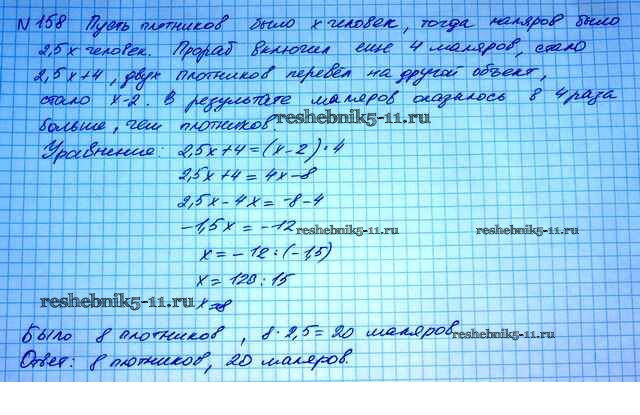 № 158 Пусть плотников было х человек, тогда маляров было
2,5х человек. Прораб включил еще 4 маляров, стало
2,5х+4, двух плотников перевёл на другой объект,
стало х-2. В результате маляров оказалось в 4 раза
больше, чем плотников.
reshebnik5-11.ru
Уравнение: 2,5х+4=(х-2)·4
2,5х+4=4х-8
2,5х-4х=-8-4
-1,5х=-12
reshebnik5-11.ru
reshebnik5-11.ru
х=-12:(-1,5)
х=120:15
reshebnik5-11.ru
х=8
Было 8 плотников, 8·2,5=20 маляров.
reshebnik5-11.ru
Ответ: 8 плотников, 20 маляров.